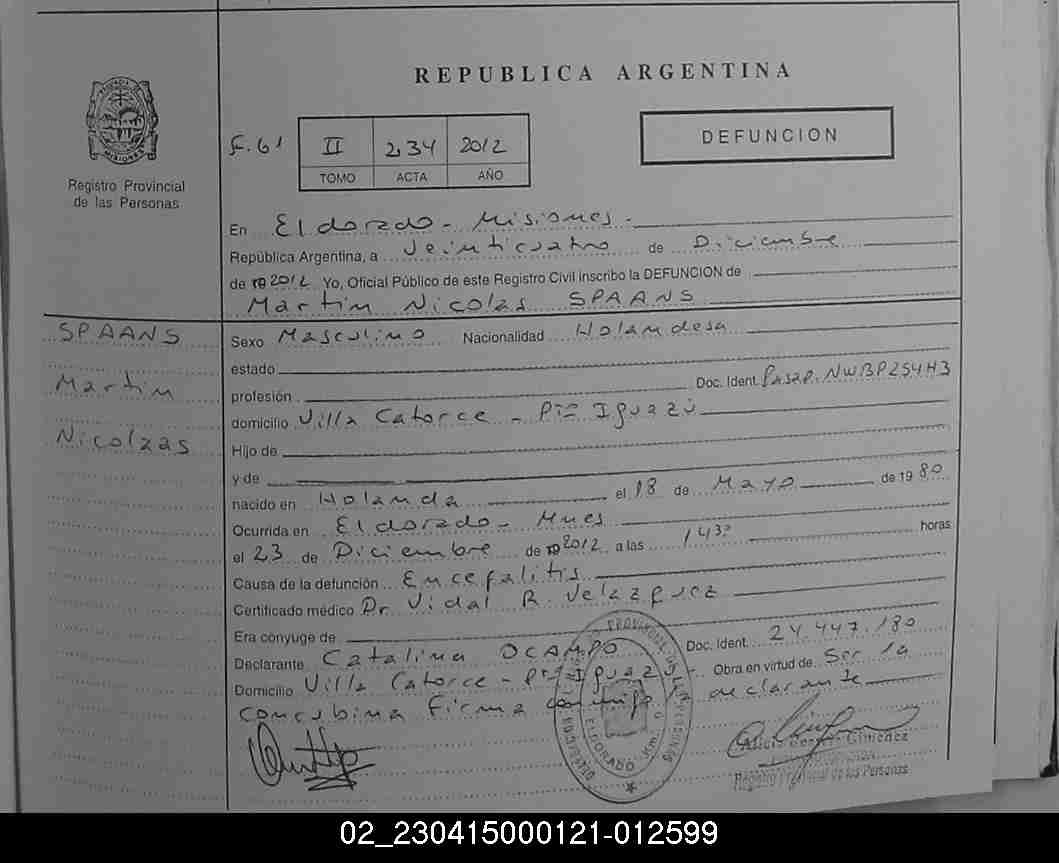 REPUBLICA ARGENTINA
DEFUNCION
F. 61 II 234 2012
TOMO ACTA AÑO
Registro Provincial
de las Personas
En Eldorado - Misiones -
República Argentina, a Veinticuatro de Diciembre
de 19 2012 Yo, Oficial Público de este Registro Civil inscribo la DEFUNCION de
Martin Nicolas SPAANS
SPAANS
Martin
Nicolzas
Sexo Masculino Nacionalidad Holandesa
estado
profesión Doc. Ident. Pasap. NWBP2S4H3
domicilio Villa Catorce - Pto Iguazú
Hijo de
y de
nacido en Holanda el 18 de Mayo de 1980
Ocurrida en Eldorado - Mnes
el 23 de Diciembre de 19 2012 a las 1430 horas
Causa de la defunción Encefalitis
Certificado médico Dr. Vidal R. Velazquez
Era cónyuge de
Declarante Catalina OCAMPO Doc. Ident. 24.447.180
Domicilio Villa Catorce - Pto Iguazú - Obra en virtud de Ser la
concubina firma conmigo declarante
ELDORADO
Gimenez
Registro Provincial de las Personas
02_230415000121-012599